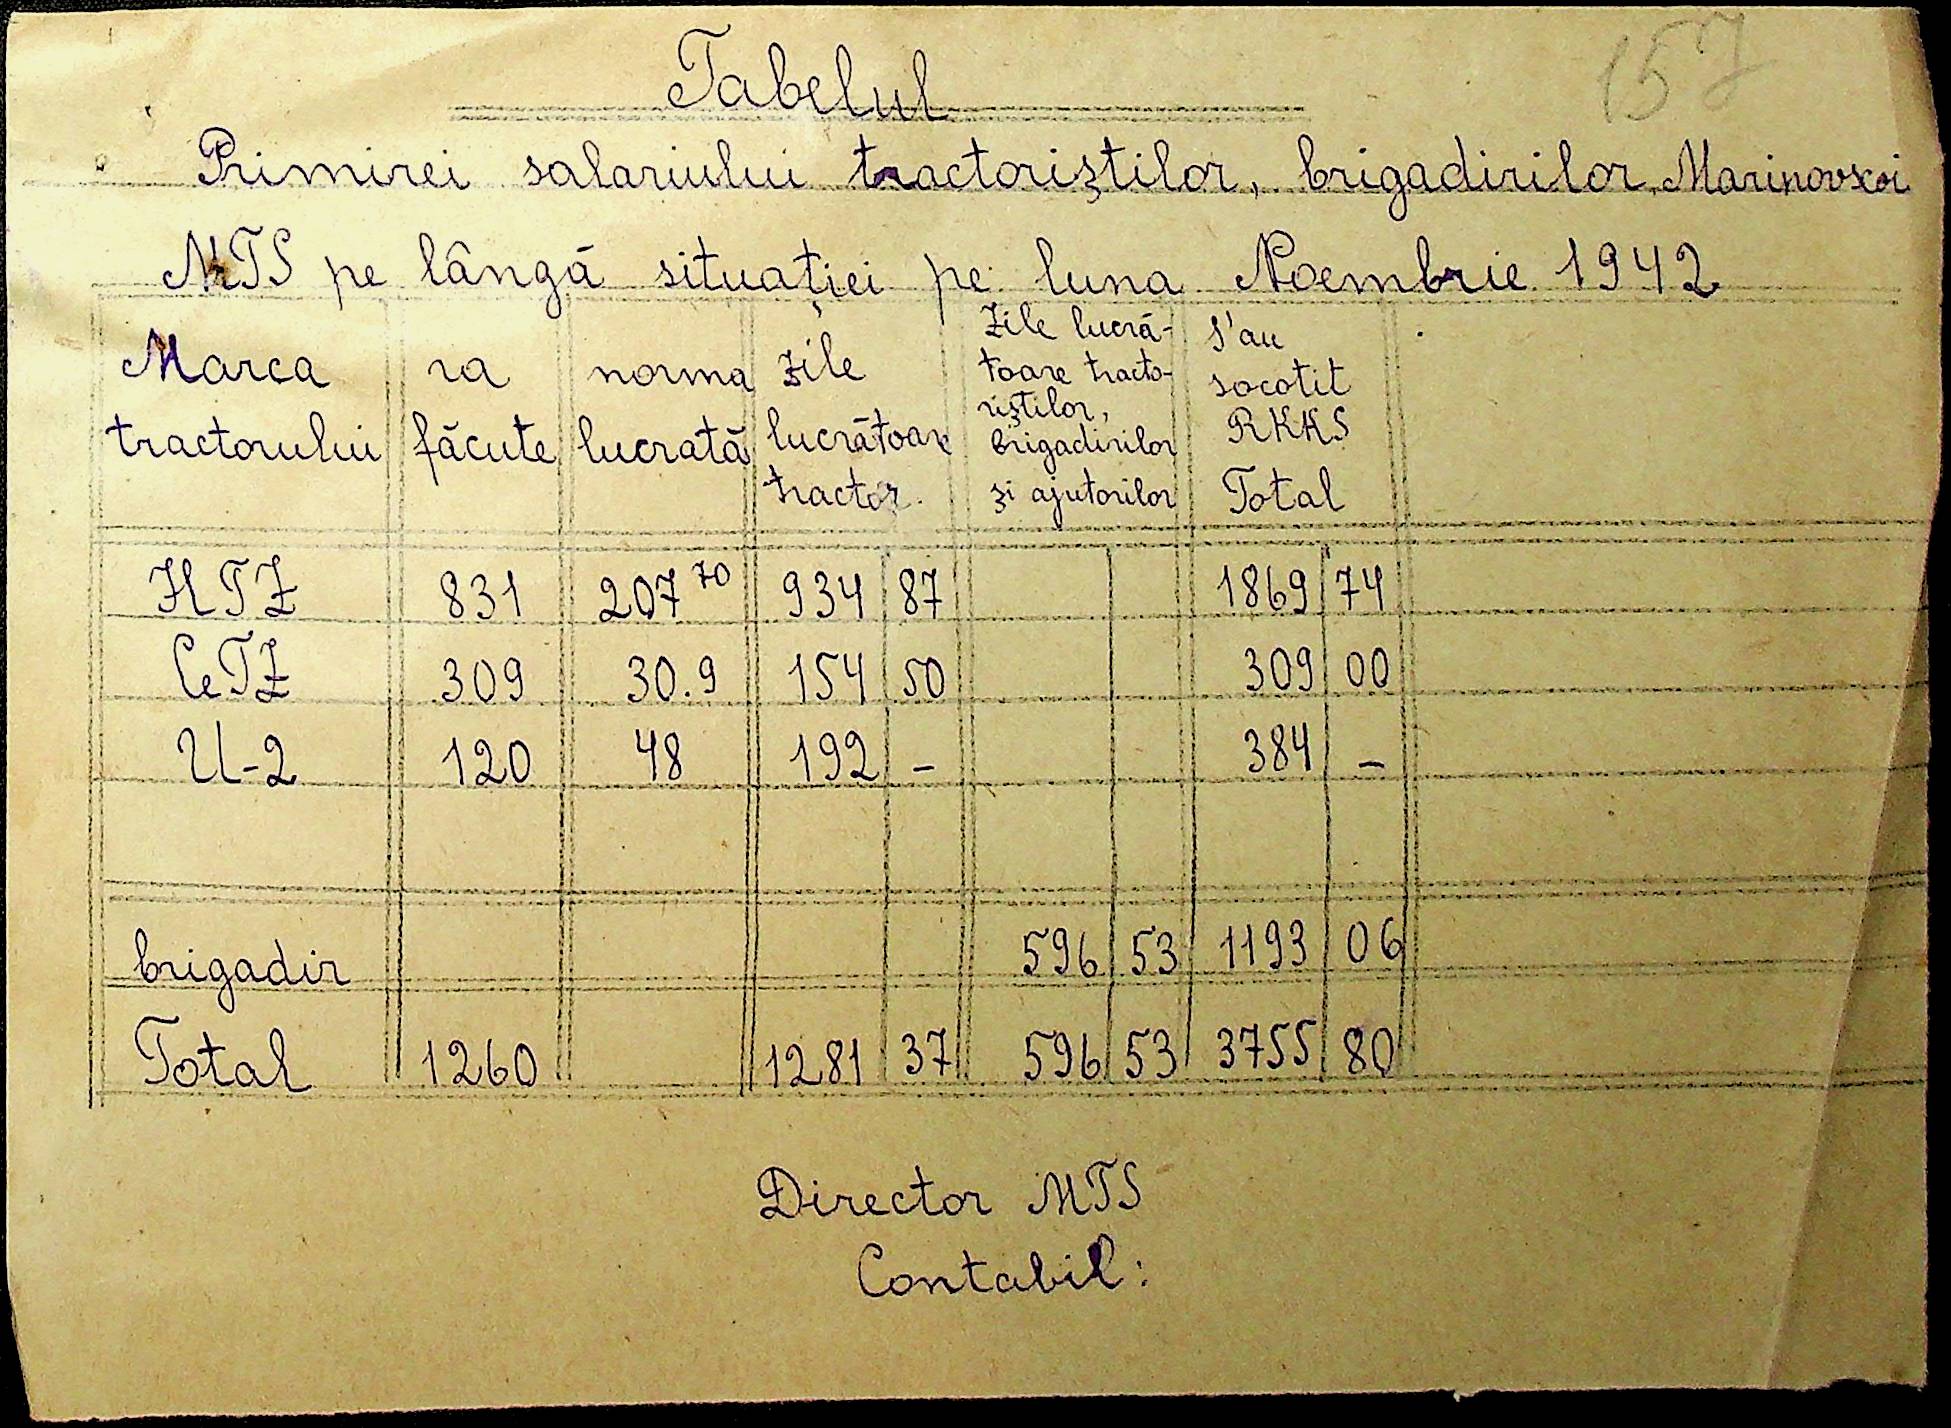 157
Tabelul
Primirei salariului tractoriștilor, brigadirilor, Marinovscoi
MTS pe lângă situației pe luna Noembrie 1942
Marca tractorului | ra făcute | norma lucrată | zile lucrătoare tractor. | Zile lucră-toare tracto-riștilor, brigadirilor și ajutorilor | S'au socotit RKKS Total
HTZ 831 207 70 934 87 1869 74
CeTZ 309 30.9 154 50 309 00
U-2 120 48 192 - 384 -
brigadir 596 53 1193 06
Total 1260 1281 37 596 53 3755 80
Director MTS
Contabil: